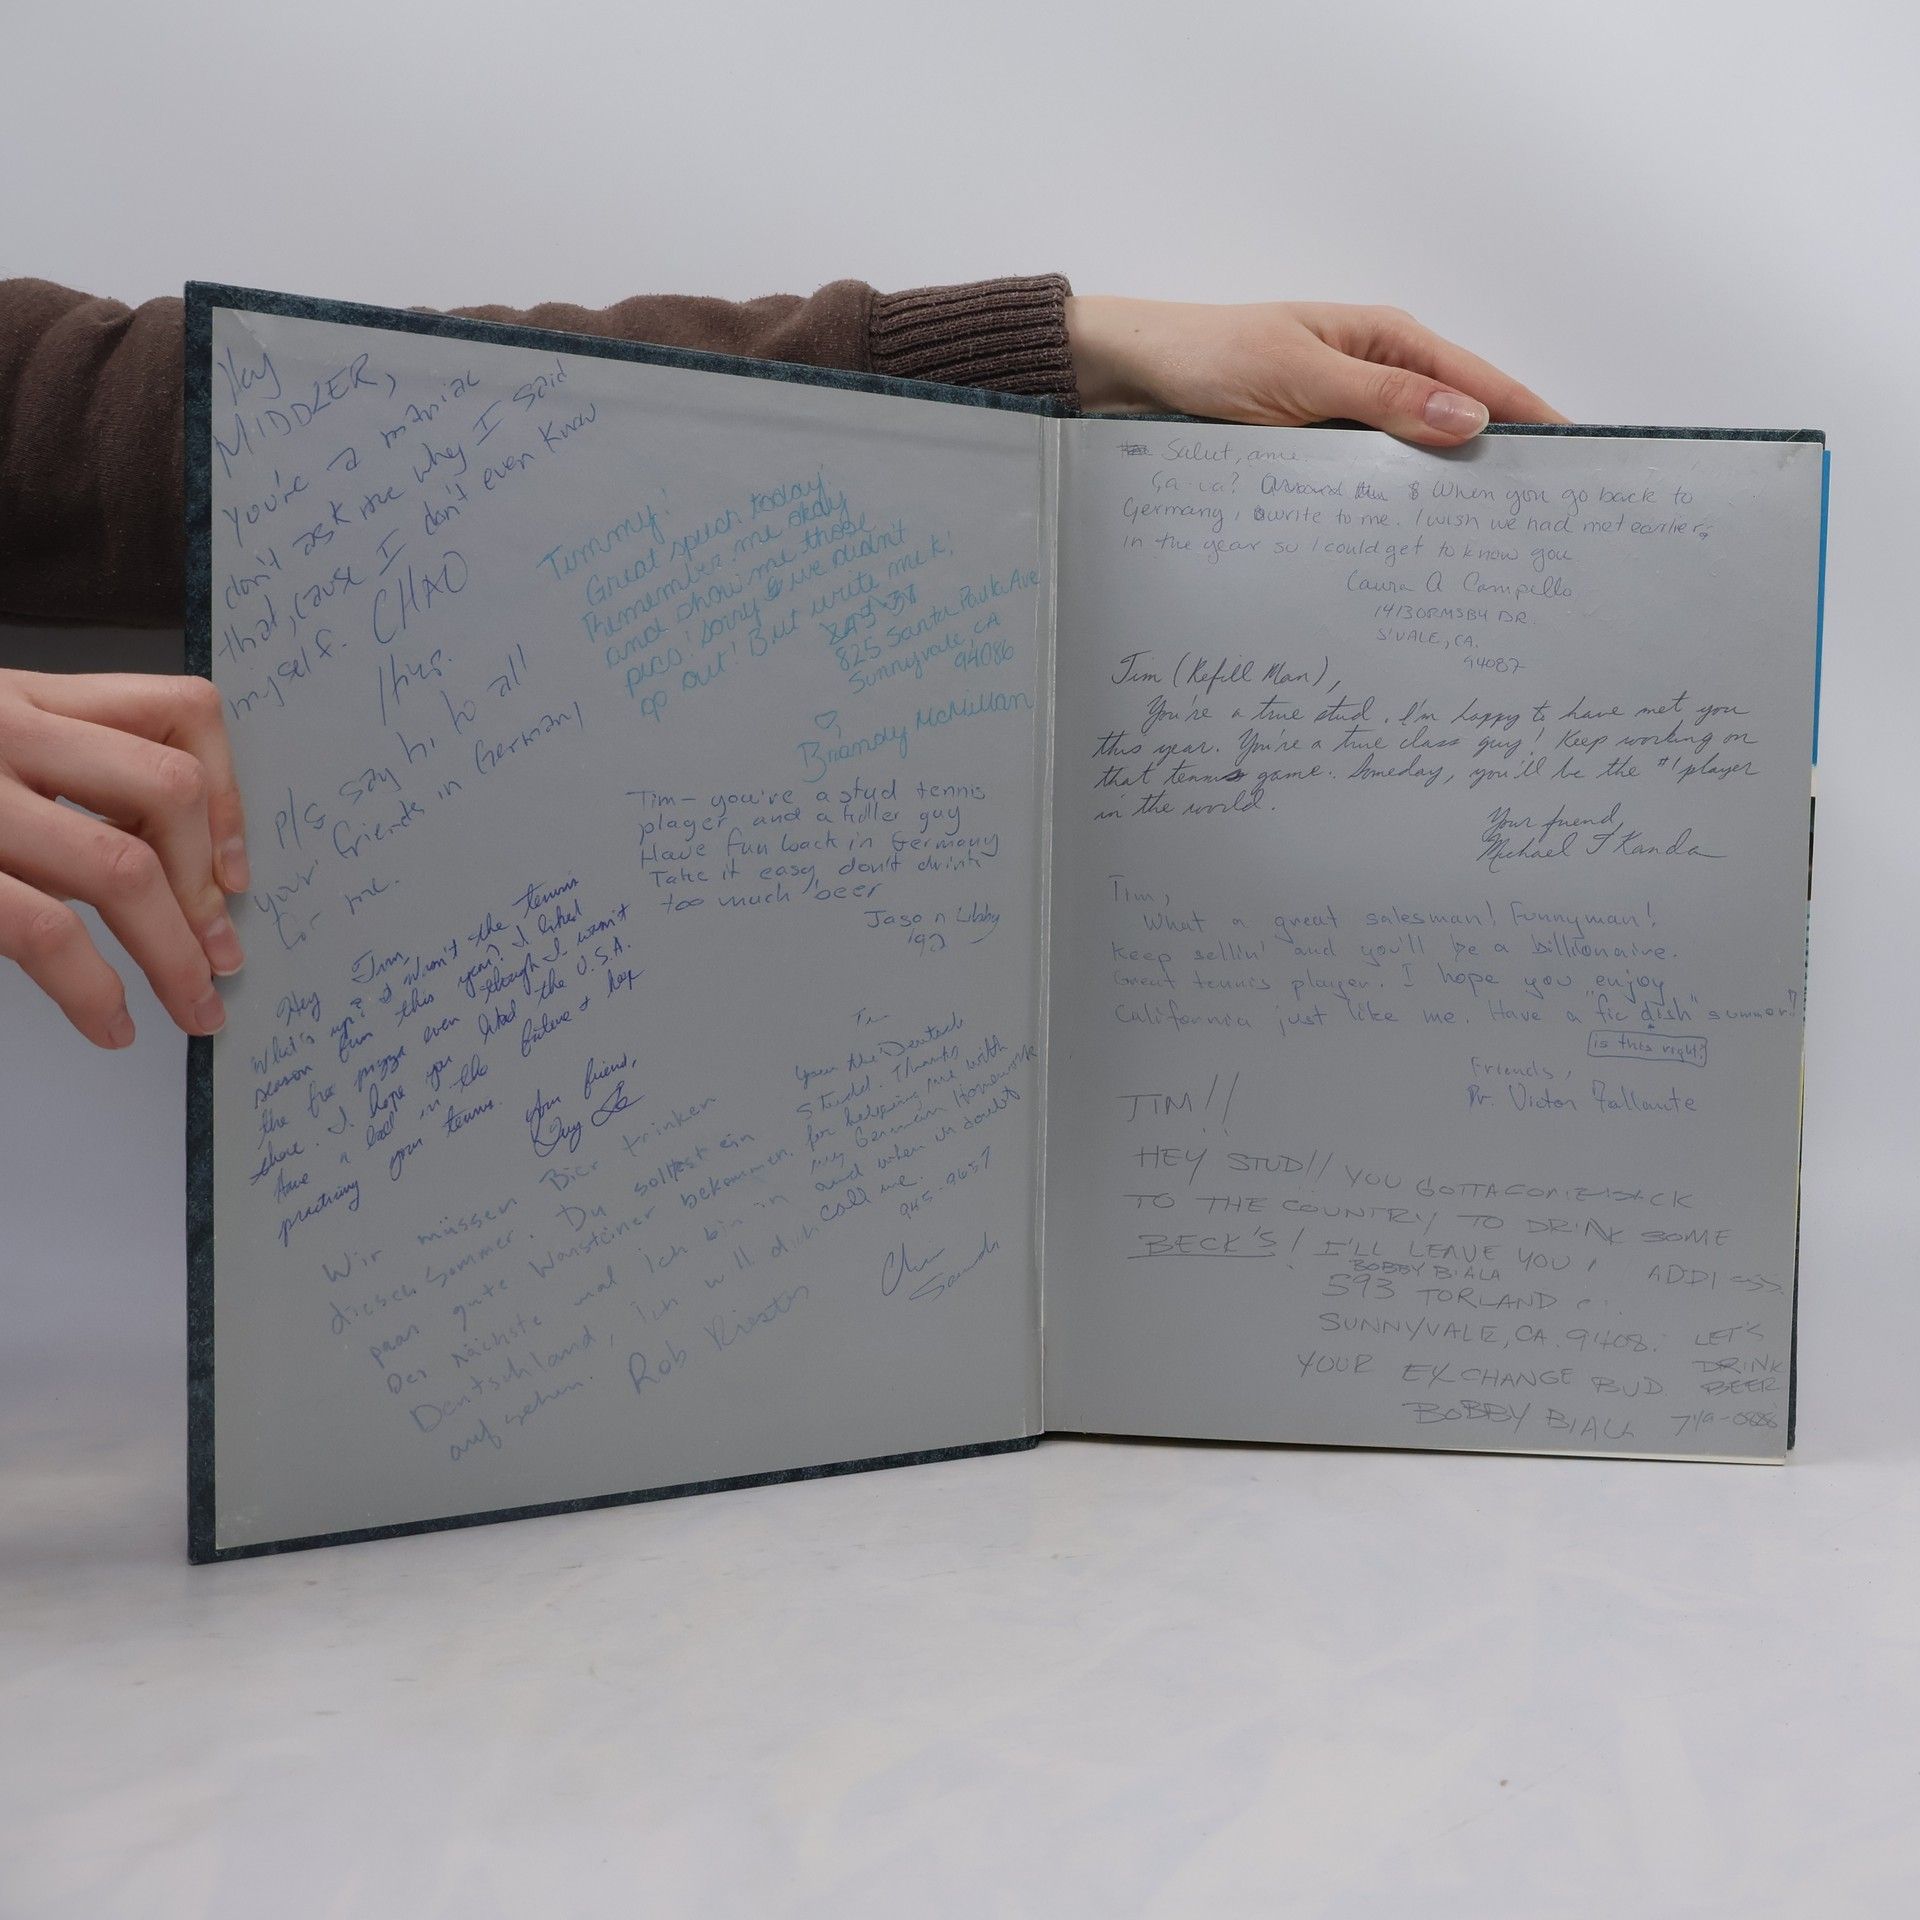 Hey
MIDDLER,
You're a maniac
don't ask me why I said
that, cause I don't even know
myself. CHAO
hi to all
P/S say
your friends in Germany
for me.
Timmy!
Great speech today.
Remember me okay
and show me those
pics! Sorry we didn't
go out! But write me k!
825 Santa Paula Ave
Sunnyvale, CA
94086
♡
Brandy McMillan
Tim- you're a stud tennis
player and a killer guy
Have fun back in Germany
Take it easy don't drink
too much beer
Jason Libby
'92
Hey Tim,
What's up? Wasn't the tennis
season fun this year? I liked
the free pizza even though I wasn't
there. I hope you liked the U.S.A.
Have a in the future & keep
practicing your tennis.
Your friend,
Guy
Wir müssen Bier trinken
diesen Sommer. Du solltest ein
paar gute Warsteiner bekommen.
Der nächste mal ich bin in
Deutschland, ich will dich
auf sehen.
Rob Riester
your the Deutsch
Studd. Thanks
for helping me with
my German Homework
and when in doubt
call me.
945-9657
Salut, ami.
Ça-va? When you go back to
Germany, write to me. I wish we had met earlier
in the year so I could get to know you
Laura A Campello
1413 ORMSBY DR.
S'VALE, CA.
94087
Jim (Refill Man),
You're a true stud. I'm happy to have met you
this year. You're a true class guy! Keep working on
that tennis game. Someday, you'll be the #1 player
in the world.
Your friend,
Michael T Kanda
Tim,
What a great salesman! Funnyman!
Keep sellin' and you'll be a billionaire.
Great tennis player. I hope you enjoy
California just like me. Have a "fic dish" summer!
is this right?
Friends,
Dr. Victor Fallante
JIM!!
HEY STUD!! YOU GOTTA COME BACK
TO THE COUNTRY TO DRINK SOME
BECK'S! I'LL LEAVE YOU
BOBBY BIALA
593 TORLAND
SUNNYVALE, CA. LET'S
YOUR EXCHANGE BUD DRINK
BEER
BOBBY BIALA